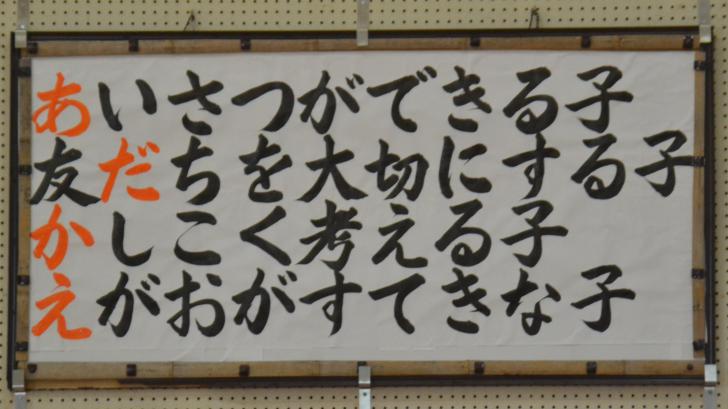 あいさつができる子
友だちを大切にする子
かしこく考える子
えがおがすてきな子